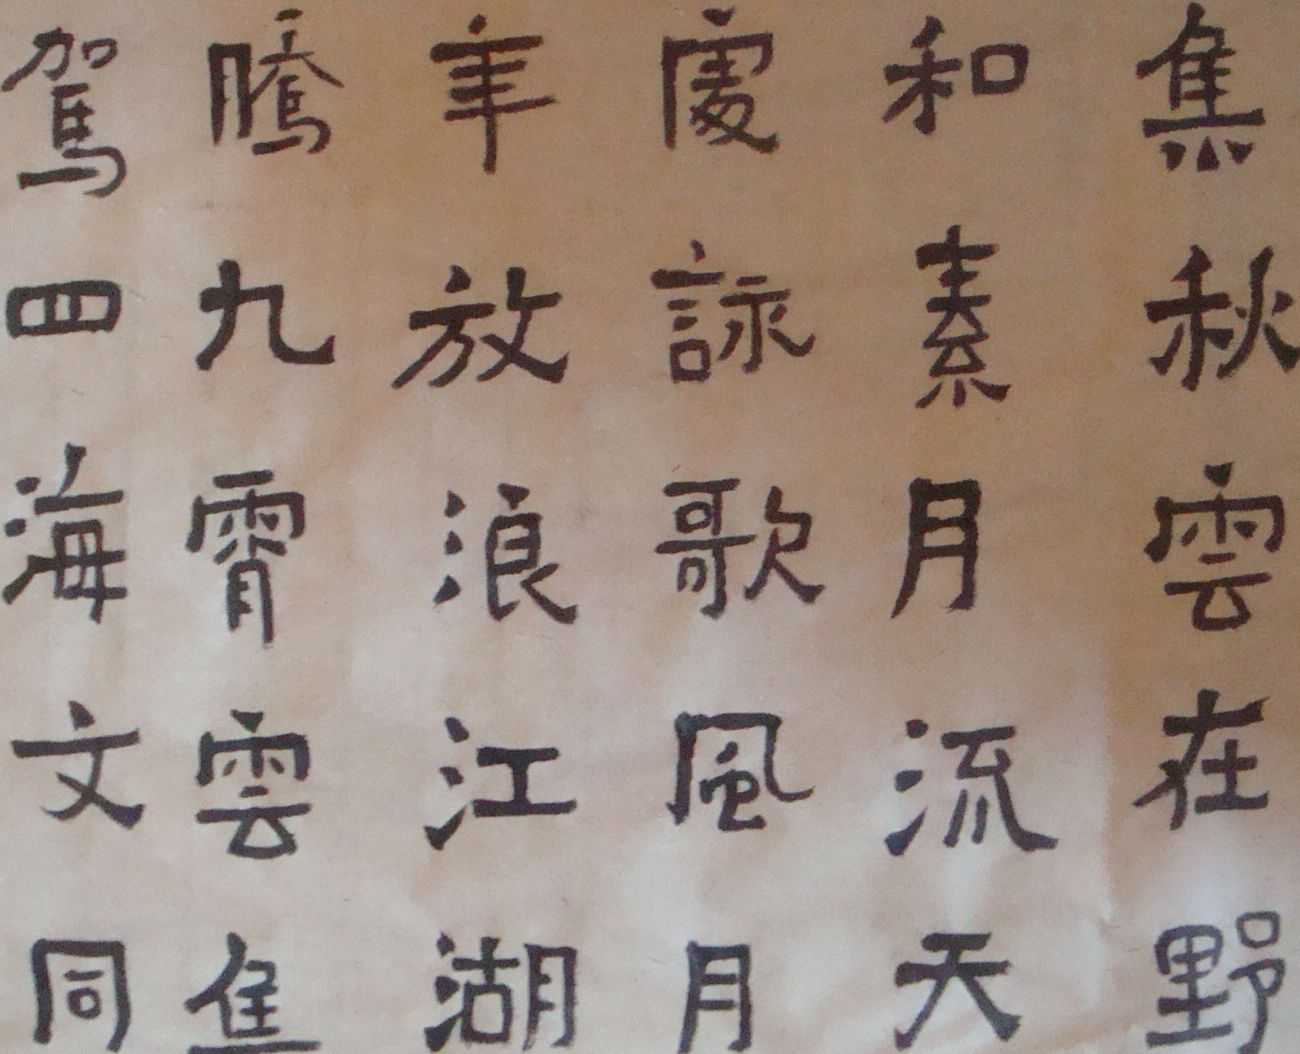 集秋雲在野
和素月流天
處詠歌風月
年放浪江湖
騰九霄雲集
駕四海文同